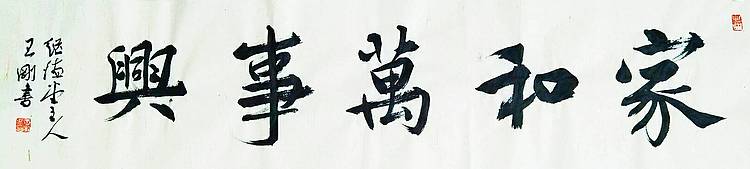 家和萬事興
德堂主人
王剛書